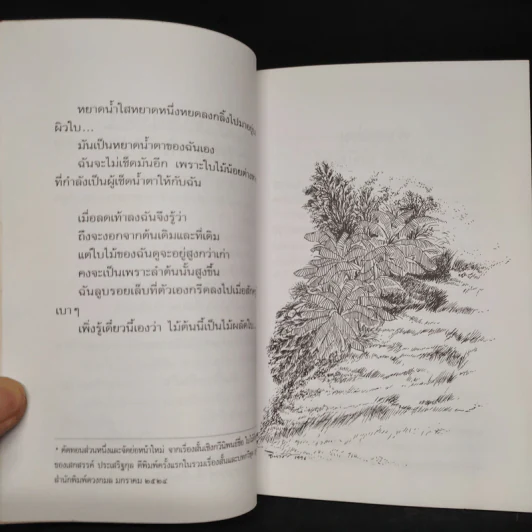 หยาดน้ำใสหยาดหนึ่งหยดลงกลิ้งไปมาอยู่
ผิวใบ...
มันเป็นหยาดน้ำตาของฉันเอง
ฉันจะไม่เช็ดมันอีก เพราะใบไม้น้อยต่าง
ที่กำลังเป็นผู้เช็ดน้ำตาให้กับฉัน
เมื่อลดเท้าลงฉันจึงรู้ว่า
ถึงจะงอกจากต้นเดิมและที่เดิม
แต่ใบไม้ของฉันดูจะอยู่สูงกว่าเก่า
คงจะเป็นเพราะลำต้นนั้นสูงขึ้น
ฉันลูบรอยเล็บที่ตัวเองกรีดลงไปเมื่อ
เบาๆ
เพิ่งรู้เดี๋ยวนี้เองว่า ไม้ต้นนี้เป็นไม้ผลัดใบ
* คัดตอนส่วนหนึ่งและจัดย่อหน้าใหม่ จากเรื่องสั้นเชิงกวีนิพนธ์ชื่อ
ของเสกสรรค์ ประเสริฐกุล ตีพิมพ์ครั้งแรกในรวมเรื่องสั้นและบทกวีชุด
สำนักพิมพ์ดวงกมล มกราคม ๒๕๒๔